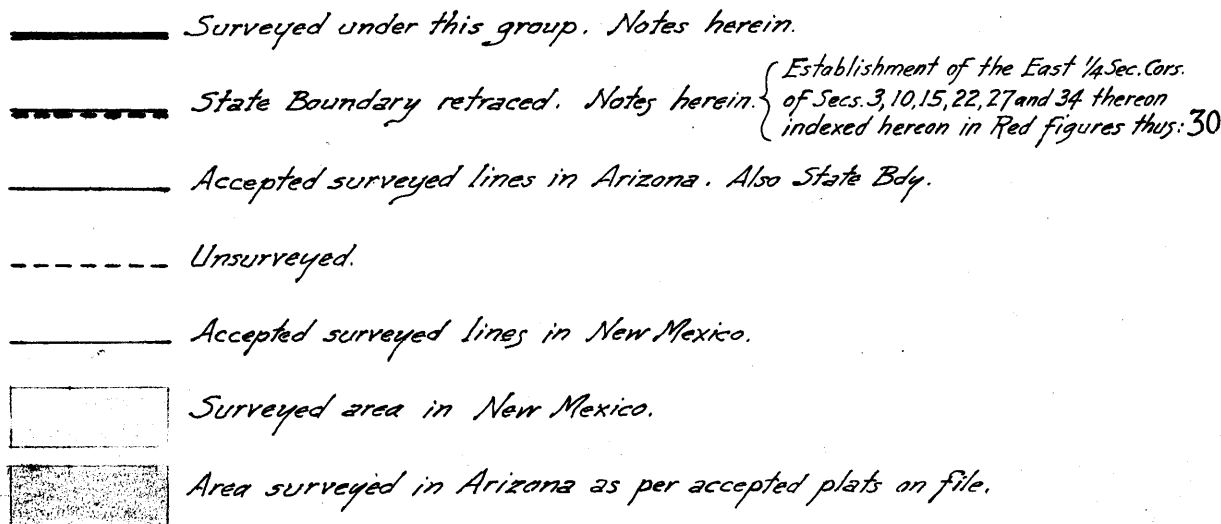 Surveyed under this group. Notes herein.
State Boundary retraced. Notes herein.
Establishment of the East 1/4 Sec. Cors.
of Secs. 3, 10, 15, 22, 27 and 34 thereon
indexed hereon in Red figures thus: 30
Accepted surveyed lines in Arizona. Also State Bdy.
Unsurveyed.
Accepted surveyed lines in New Mexico.
Surveyed area in New Mexico.
Area surveyed in Arizona as per accepted plats on file.